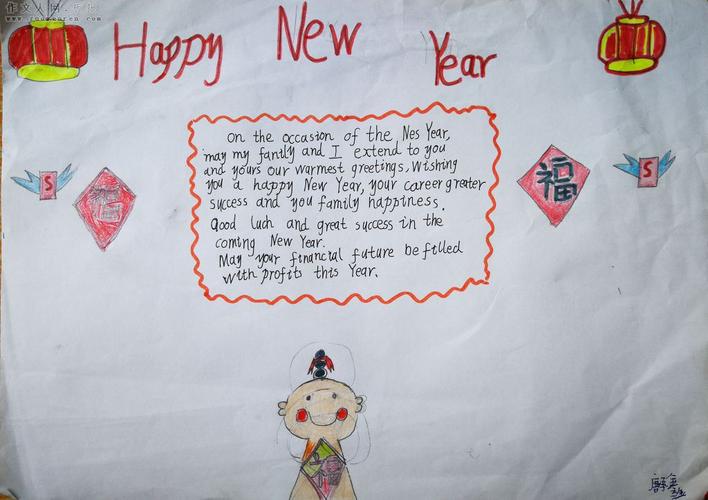 作文人网
www.zuowenren.com
Happy New Year
On the occasion of the Nes Year,
may my fantly and I extend to you
and yours our warmest greetings, wishing
you a happy New Year, your career greater
success and you family happiness.
Good luch and great success in the
coming New Year.
May your financial future be filled
with profits this Year.
S
福
福
S